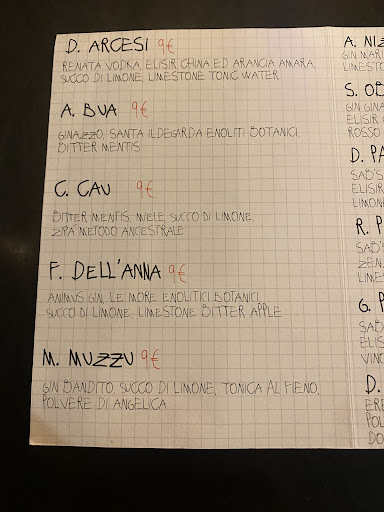 D. ARCESI 9€
RENATA VODKA, ELISIR CHINA ED ARANCIA AMARA,
SUCCO DI LIMONE, LIMESTONE TONIC WATER
A. BUA 9€
GINAZZO, SANTA ILDEGARDA ENOLITI BOTANICI,
BITTER MENTIS
C. CAU 9€
BITTER MENTIS, MIELE, SUCCO DI LIMONE,
ZIRA METODO ANCESTRALE
F. DELL'ANNA 9€
ANIMUS GIN, LE MORE ENOLITICI BOTANICI,
SUCCO DI LIMONE, LIMESTONE BITTER APPLE
M. MUZZU 9€
GIN BANDITO, SUCCO DI LIMONE, TONICA AL FIENO,
POLVERE DI ANGELICA
A. NIZ
GIN MARI
LIMESTO
S. OB
GIN GINA
ELISIR
ROSSO
D. PA
SAB'S
ELISIR
LIMON
R. P
SAB'S
ZEN
LIME
G. P
SAB'
ELIS
VINO
D.
ERE
POL
DO